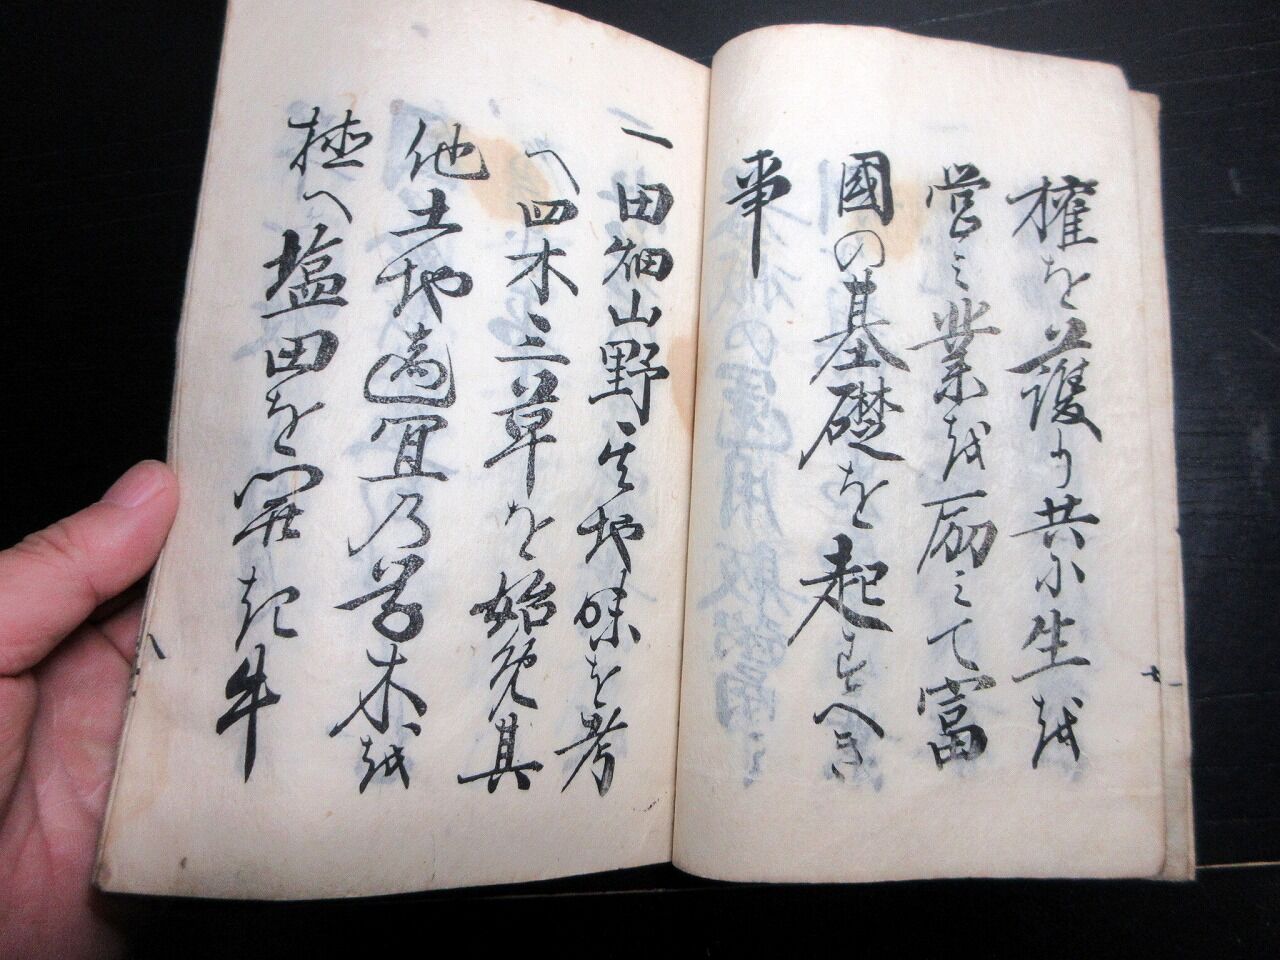 權を護り共に生を
営ミ業を励ミて富
國の基礎を起すへき
事
一田畑山野其地味を考
へ四木三草を始免其
他土地適宜乃草木を
植へ塩田を開き牛